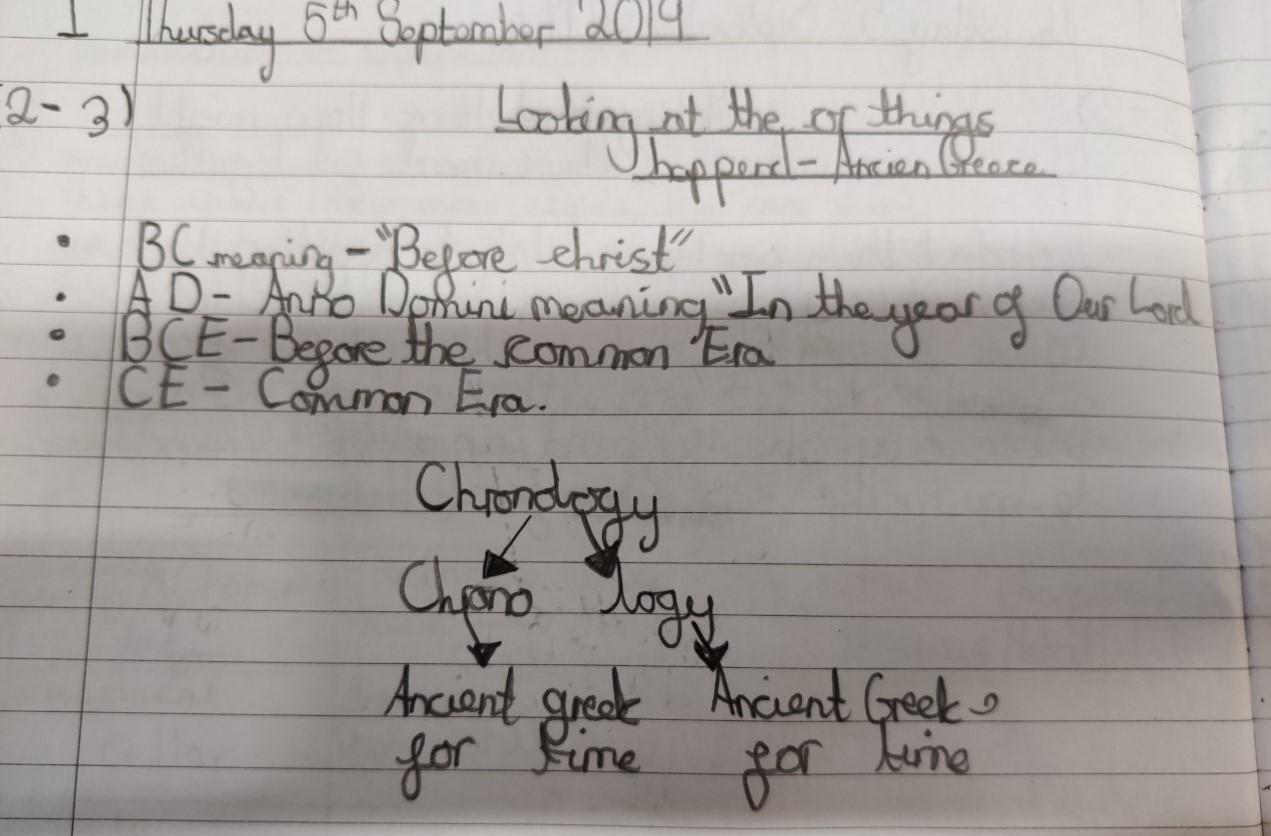 1 Thursday 5th September 2019
(2-3) Looking at the or things
happend - Ancien Greece
• BC meaning - "Before christ"
• AD - Anno Domini meaning "In the year of Our Lord
• BCE - Before the common Era
• CE - Common Era.
Chronology
Chrono logy
Ancient greek Ancient Greek
for time for time